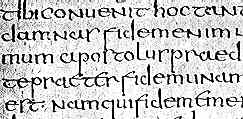 tibi conuenit hoc tant
damnas fidem enim u
mum apostolus praed
te praeter fidem unam
est. Namqui fidem eme